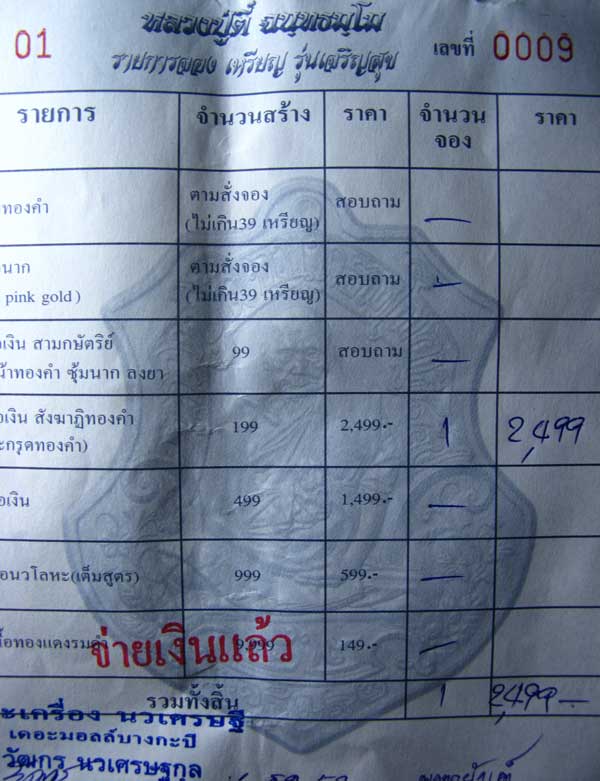 หลวงปู่ตี๋ ฉนฺทธมฺโม
01 รายการจอง เหรียญ รุ่นเจริญสุข เลขที่ 0009
รายการ จำนวนสร้าง ราคา จำนวนจอง ราคา
ทองคำ ตามสั่งจอง สอบถาม —
(ไม่เกิน39 เหรียญ)
นาก ตามสั่งจอง สอบถาม —
pink gold ) (ไม่เกิน39 เหรียญ)
เงิน สามกษัตริย์ 99 สอบถาม —
ทองคำ ซุ้มนาก ลงยา
เงิน สังฆาฏิทองคำ 199 2,499.- 1 2,499
ะกรุดทองคำ)
เงิน 499 1,499.- —
นวโลหะ(เต็มสูตร) 999 599.- —
ทองแดงรมดำ 9,999 149.- —
จ่ายเงินแล้ว
รวมทั้งสิ้น 1 2,499 —
ะเครื่อง นวเศรษฐี
เดอะมอลล์บางกะปิ
วัฒกร นวเศรษฐกุล